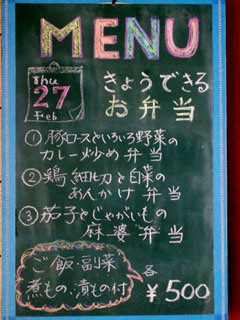 MENU
Thu
27
Feb
きょうできる
お弁当
①豚ロースといろいろ野菜の
カレー炒め弁当
②鶏細切と白菜の
あんかけ弁当
③茄子とじゃがいもの
麻婆弁当
ご飯・副菜
煮もの・漬もの付
各
¥500